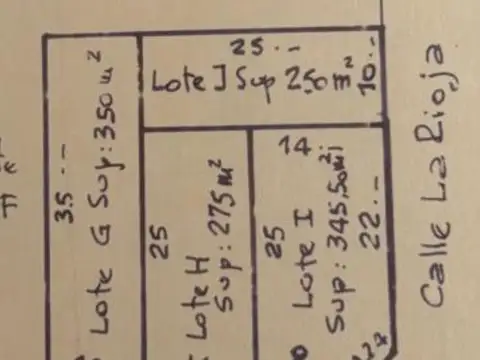 25.--
Lote J Sup 250m²
10.--
35.--
Lote G Sup: 350m²
25
Lote H
Sup: 275m²
14
25
Lote I
Sup: 345,50m²
22.--
Calle La Rioja